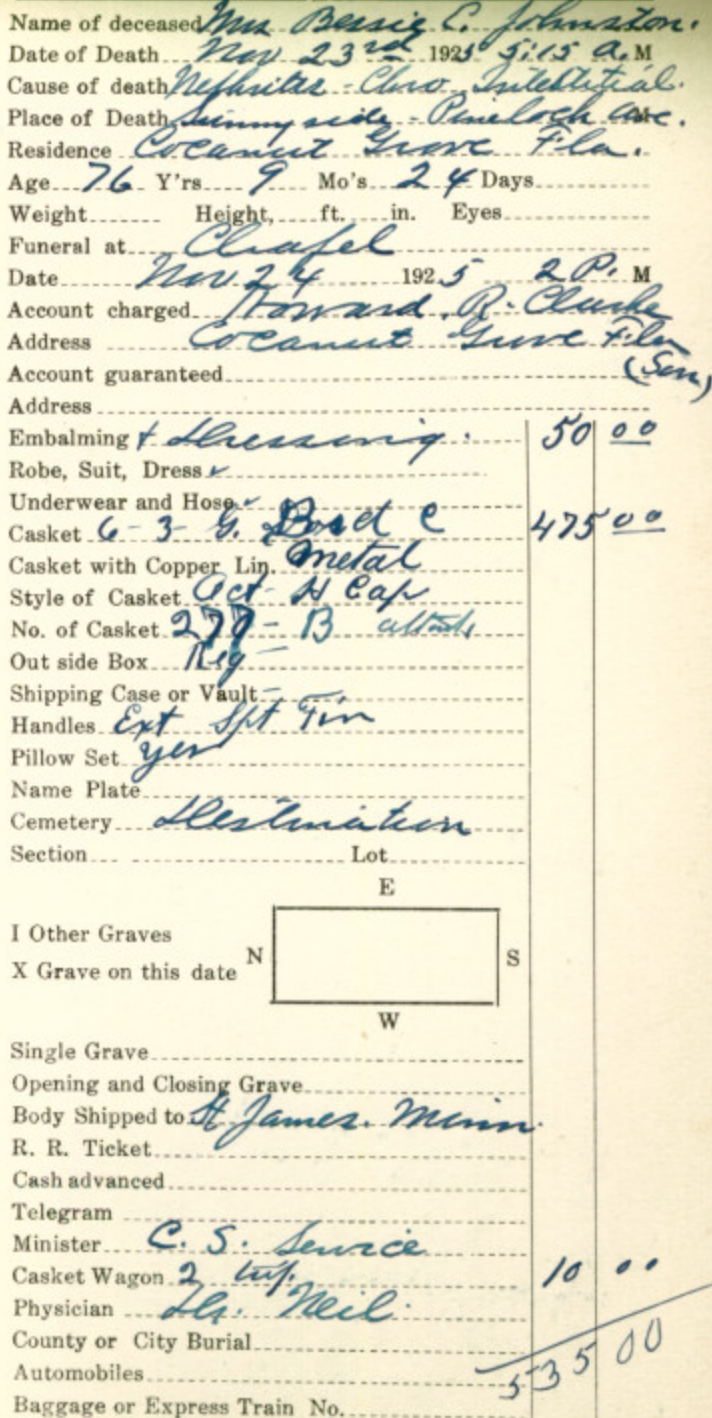 Name of deceased Mrs Bessie C. Johnston.
Date of Death Nov 23rd 1925 5:15 a. M
Cause of death Nephrites - Chro Intestitial.
Place of Death Sunnyside - Pineloch Ave. M
Residence Cocanut Grove Fla.
Age 76 Y'rs 9 Mo's 24 Days
Weight Height, ft. in. Eyes
Funeral at Chapel
Date Nov 24 1925 2 P. M
Account charged Howard R. Clarke
Address Cocanut Grove Fla
Account guaranteed (Son)
Address
Embalming + Dressing. 50 00
Robe, Suit, Dress
Underwear and Hose
Casket 6-3 G. Bord C 475 00
Casket with Copper Lin. Metal
Style of Casket Oct- H Cap
No. of Casket 277 - B
Out side Box Reg -
Shipping Case or Vault -
Handles Ext Spt Tin
Pillow Set yes
Name Plate
Cemetery Destination
Section Lot
E
I Other Graves
N S
X Grave on this date
W
Single Grave
Opening and Closing Grave
Body Shipped to St James. Minn.
R. R. Ticket
Cash advanced
Telegram
Minister C. S. Service
Casket Wagon 2 trip. 10 00
Physician Dr. Neil.
County or City Burial
Automobiles 535 00
Baggage or Express Train No.